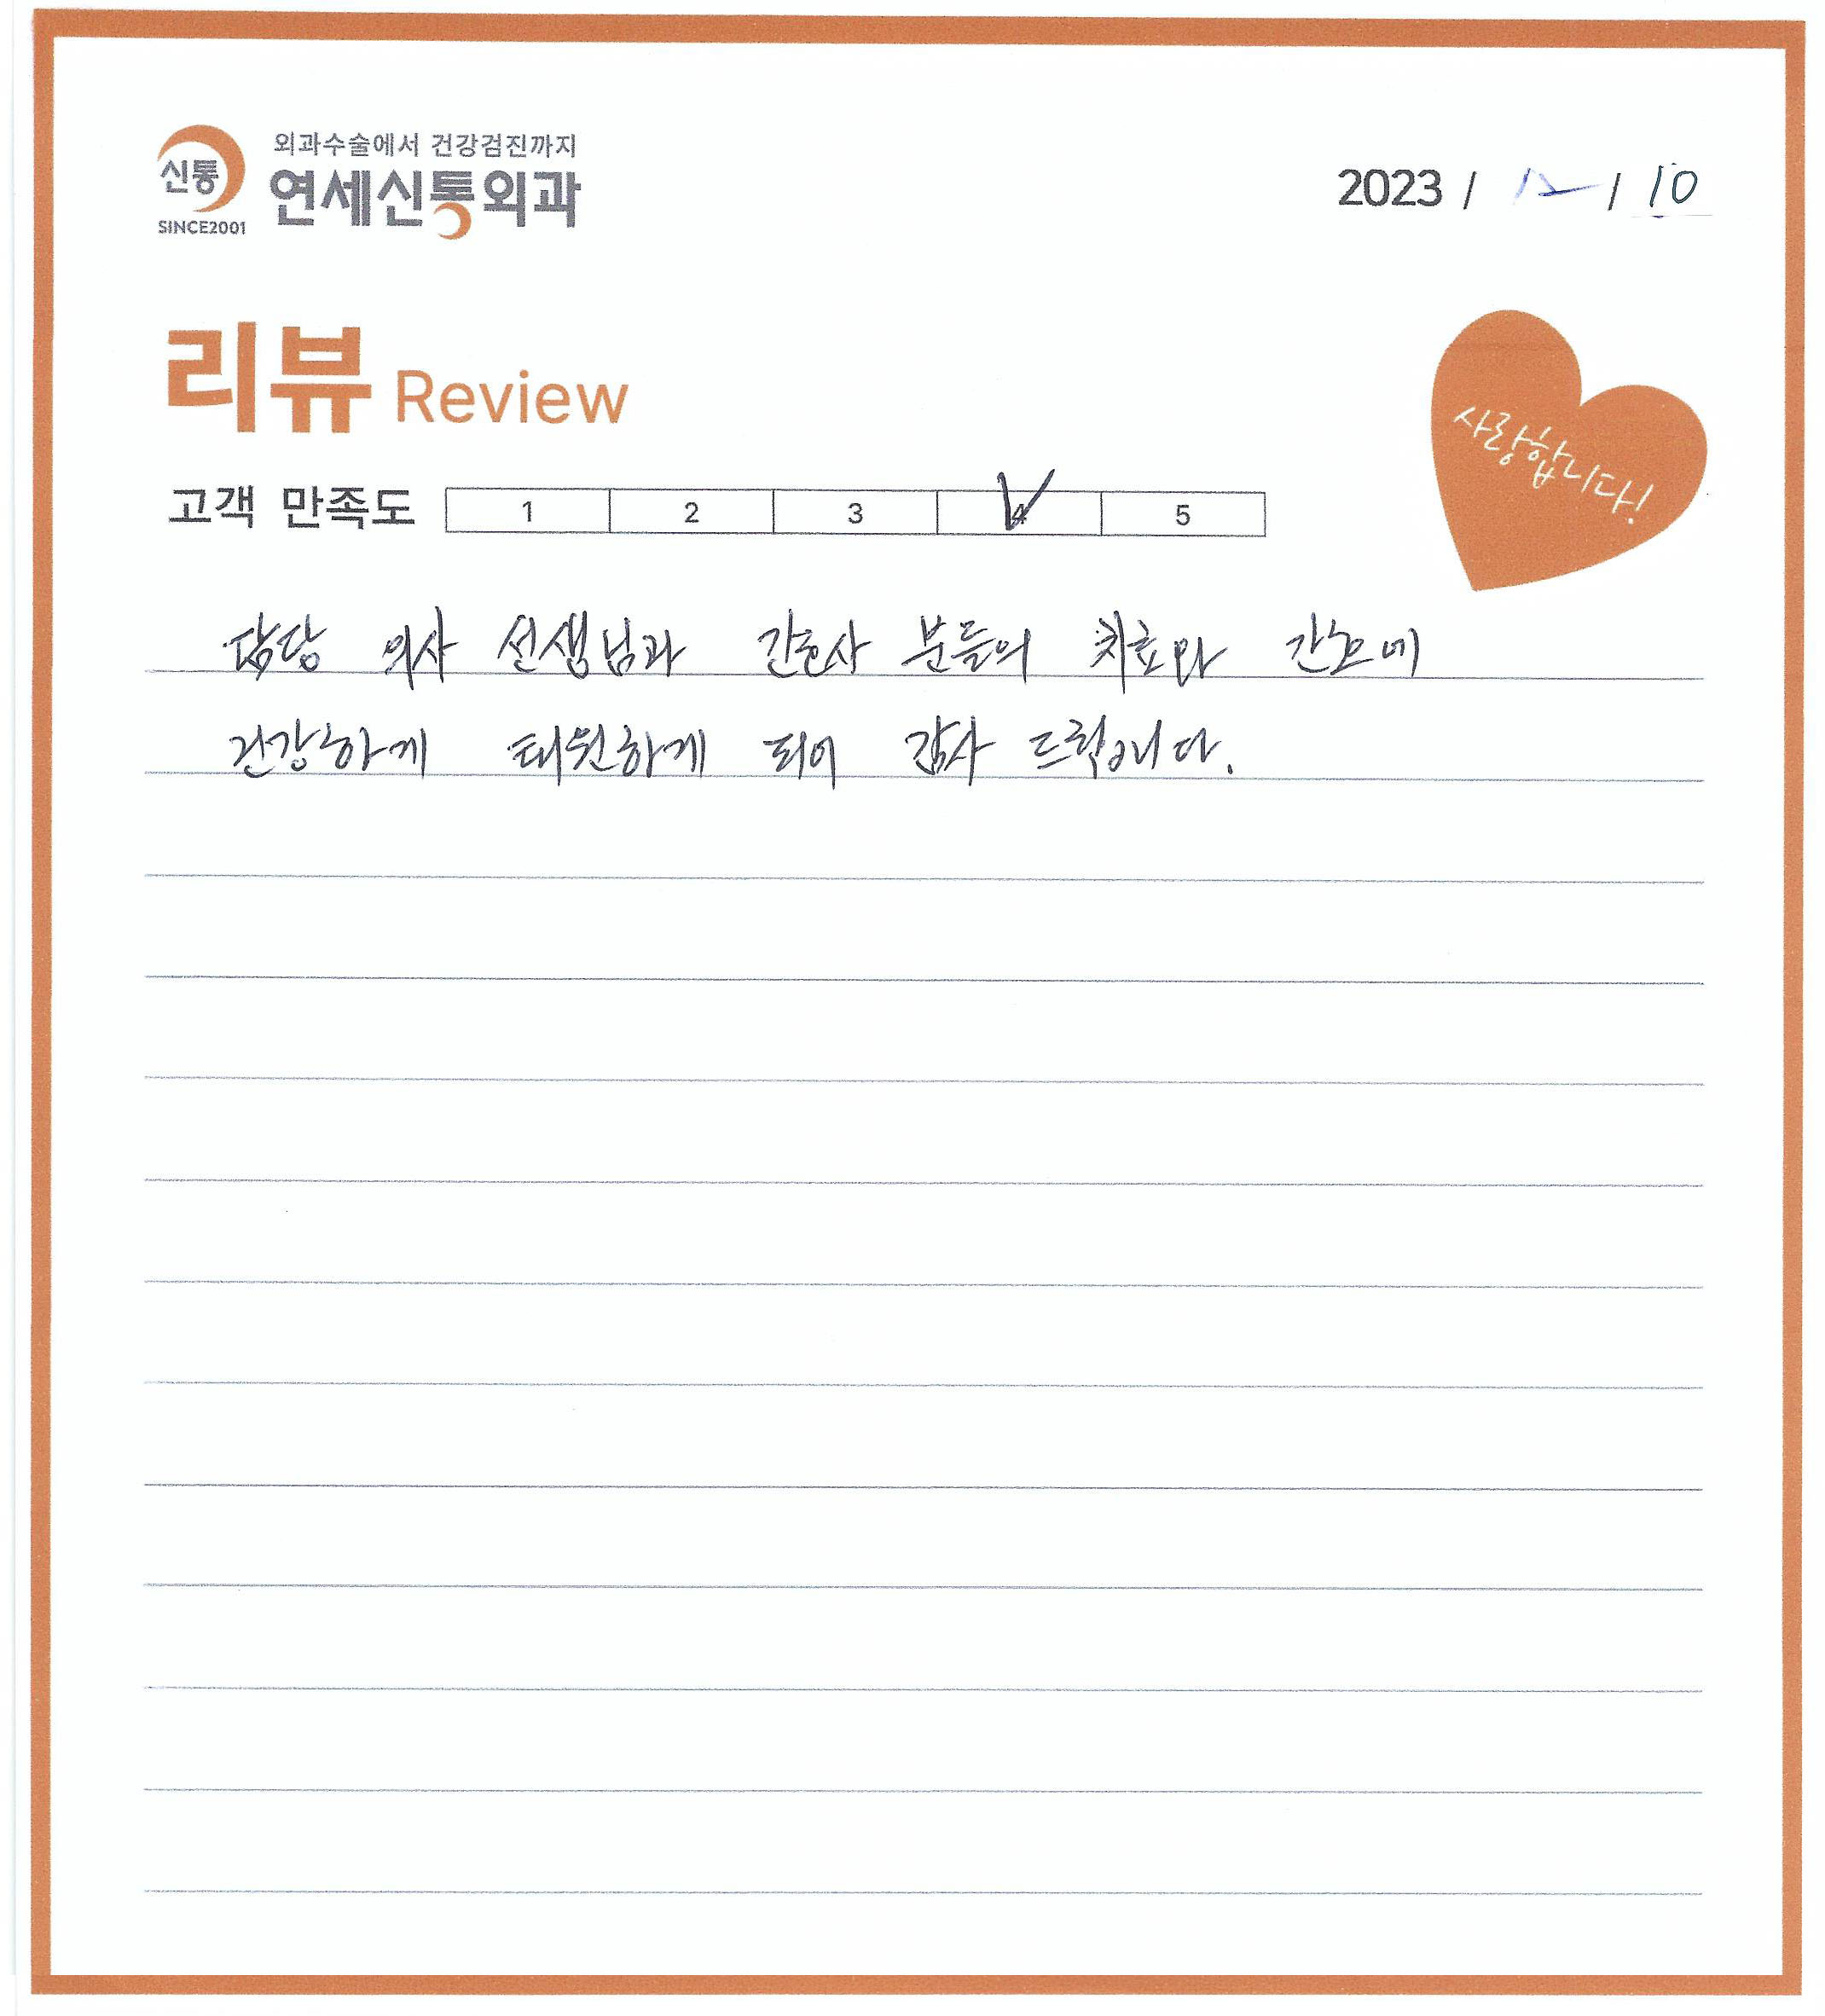 외과수술에서 건강검진까지
신통
연세신통외과
SINCE2001
2023 / 12 / 10
리뷰 Review
사랑합니다!
고객 만족도 1 2 3 4 5
담당 의사 선생님과 간호사 분들의 치료와 간호에
건강하게 퇴원하게 되어 감사 드립니다.